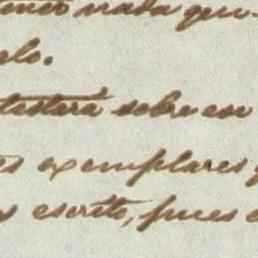 nada que
elo.
testará sobre ese
es exemplares
s escrito, pues e